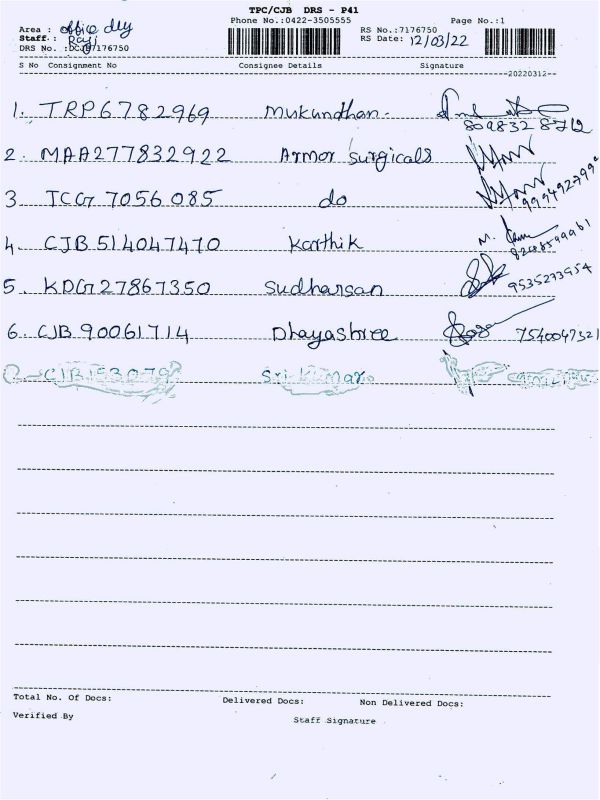 TPC/CJB DRS - P41
Phone No.:0422-3505555 Page No.:1
Area : office dly RS No.:7176750
Staff : Raji RS Date: 12/03/22
DRS No. :DCJB7176750
S No Consignment No Consignee Details Signature
20220312
1. TRP6782969 Mukundhan.
2. MAA277832922 Armor Surgicals
3 TCG 7056 085 do
4. CJB 514047470 Karthik
5. KDG27867350 Sudharsan 9535273954
6. CJB 90061714 Dhayashree 7540047321
Sri Kumar
Total No. Of Docs: Delivered Docs: Non Delivered Docs:
Verified By Staff Signature